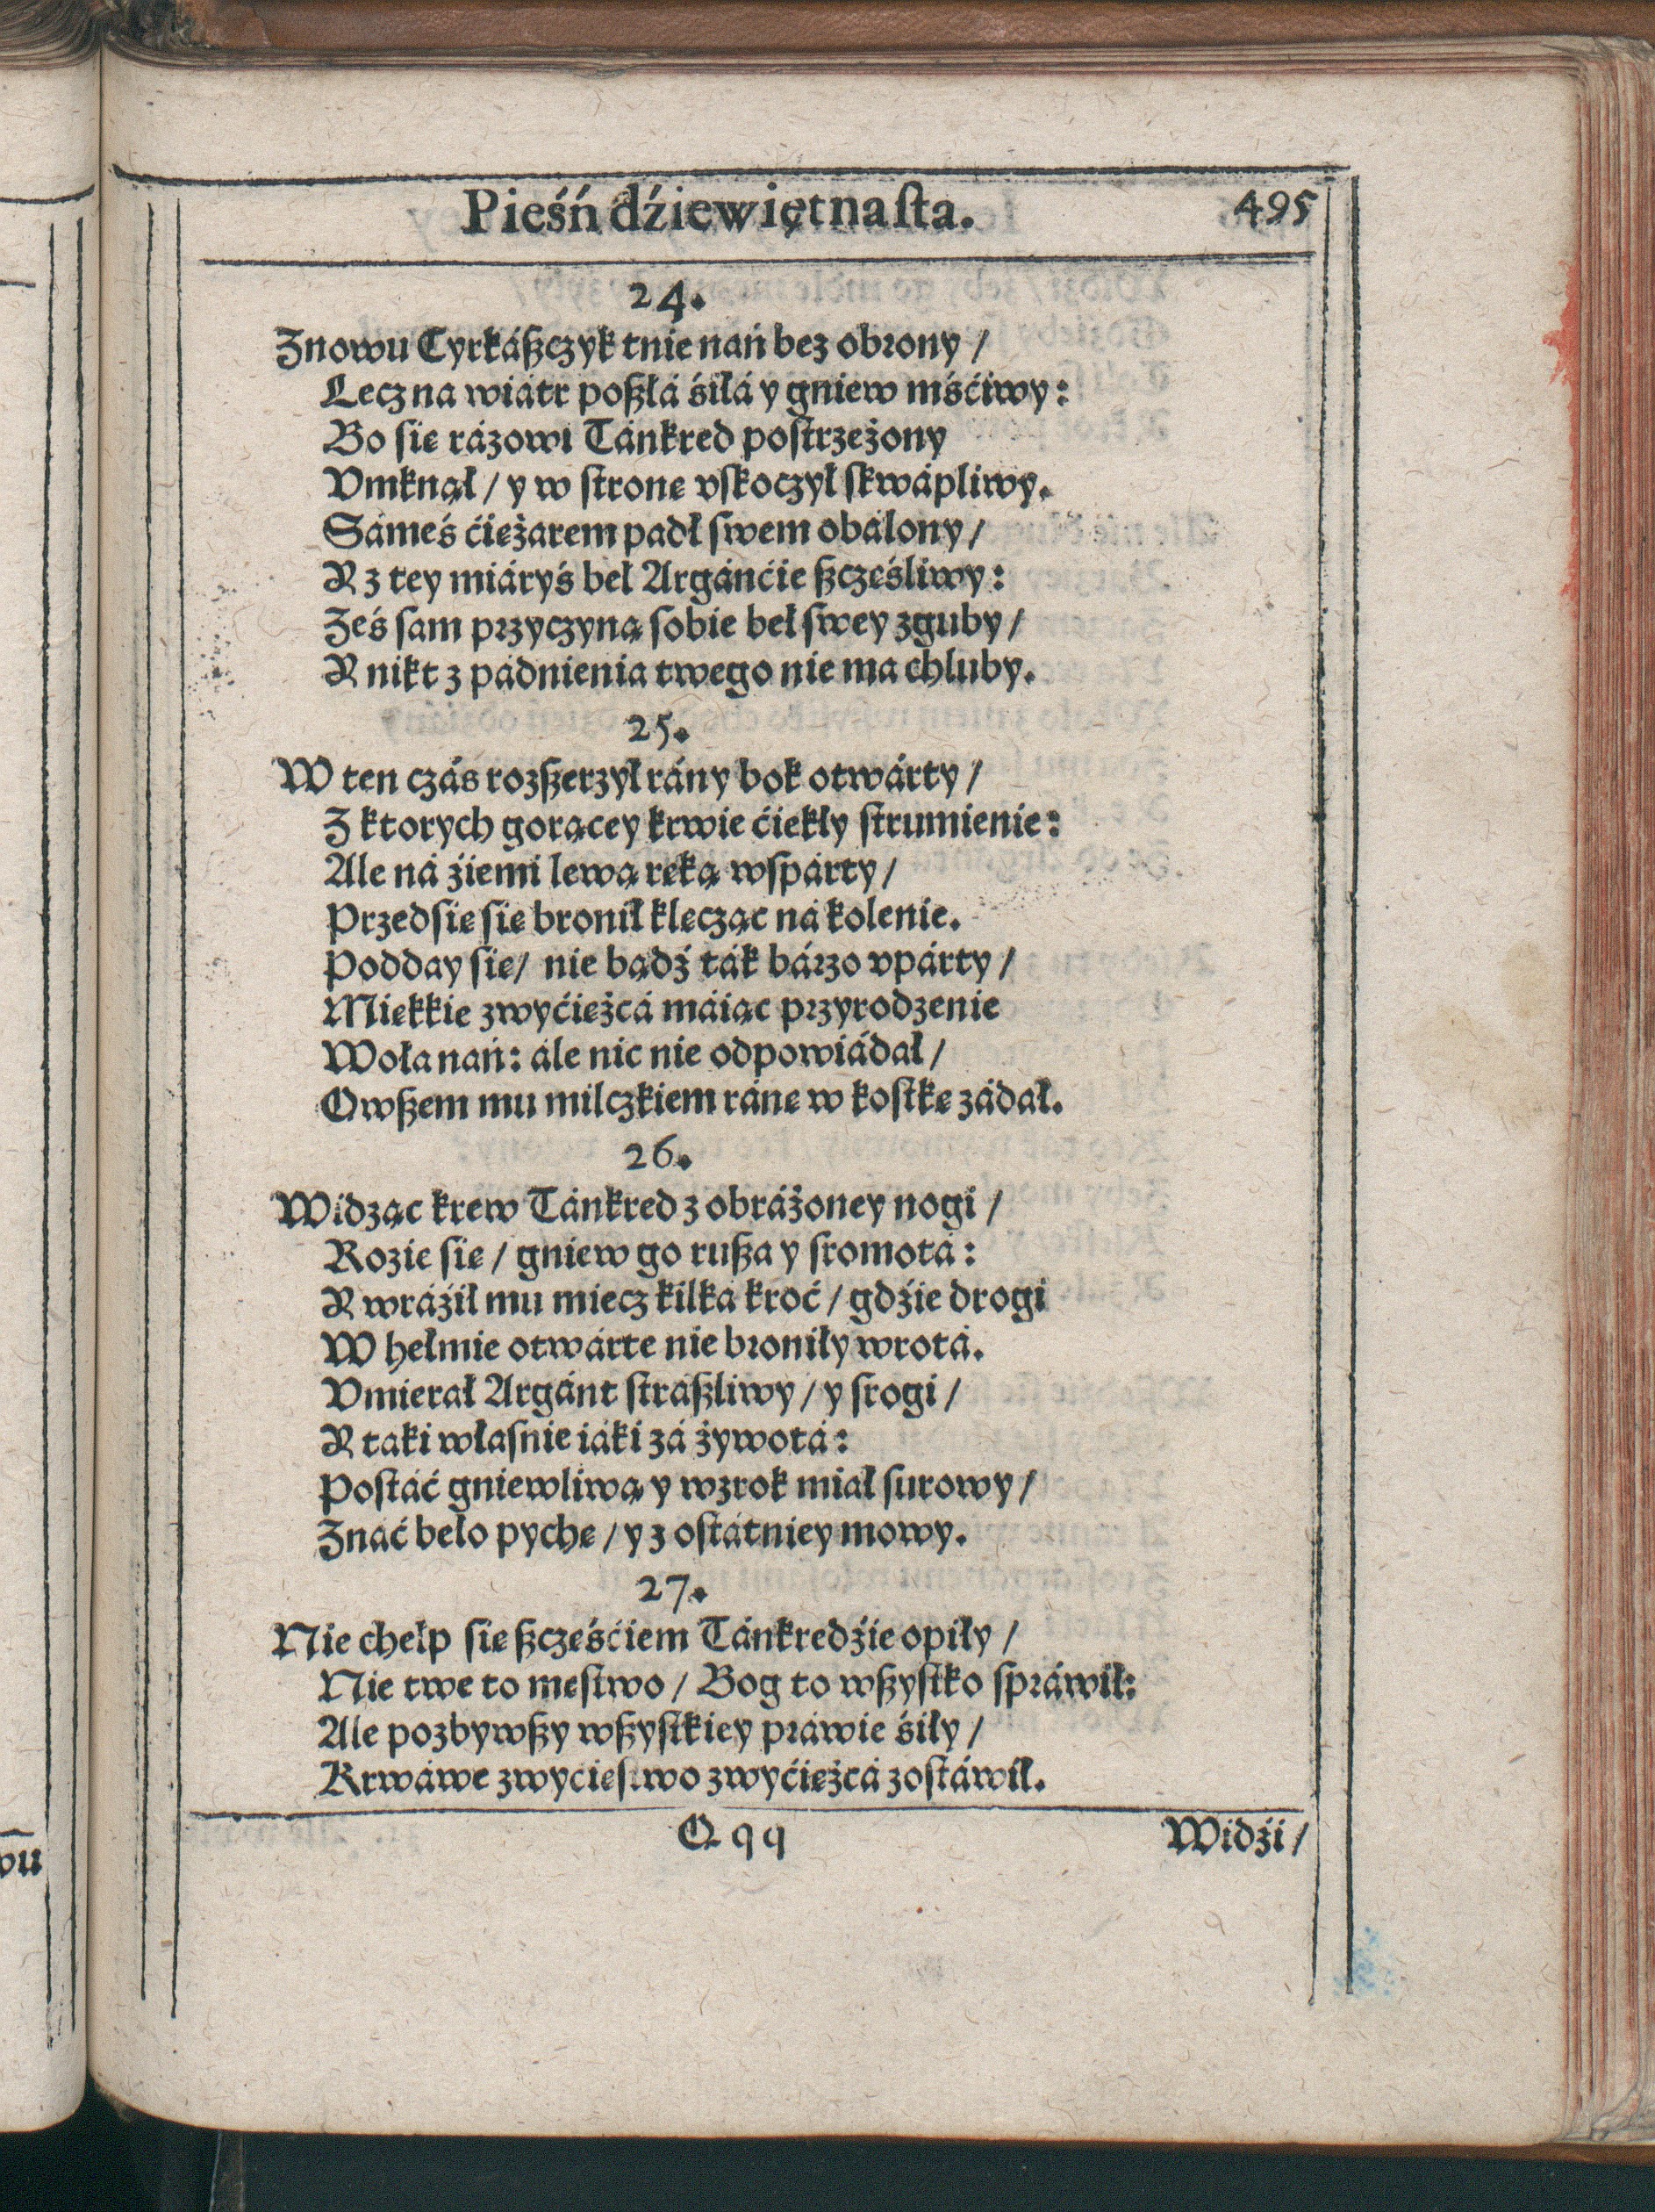 Pieśń dźiewiętnaſta. 495
24.
Znowu Cyrkáßczyk tnie nań bez obrony /
Lecz na wiátr poßłá śiłá y gniew mśćiwy:
Bo ſię rázowi Tánkred poſtrzeżony
Vmknął / y w ſtronę vſkoczył ſkwápliwy.
Sámeś ćięźarem padł ſwem obálony /
Y z tey miáryś beł Argánćie ßczęśliwy:
Żeś ſam przyczyną ſobie beł ſwey zguby /
Y nikt z pádnienia twego nie ma chluby.
25.
W ten czás rozßerzył rány bok otwárty /
Z ktorych gorącey krwie ćiekły ſtrumienie:
Ale ná źiemi lewą ręką wſpárty /
Przedſię ſię bronił klęcząc ná kolenie.
Podday ſię / nie bądź ták bárzo vpárty /
Miękkie zwyćięźcá máiąc przyrodzenie
Woła nań: ále nic nie odpowiádał /
Owßem mu milczkiem ránę w koſtkę zádał.
26.
Widząc krew Tánkred z obráżoney nogi /
Rozie ſię / gniew go rußa y ſromotá:
Y wráźił mu miecz kilká kroć / gdźie drogi
W hełmie otwárte nie broniły wrotá.
Vmierał Argánt ſtráßliwy / y ſrogi /
Y taki właſnie iáki zá żywotá:
Poſtáć gniewliwą y wzrok miał ſurowy /
Znáć beło pychę / y z oſtátniey mowy.
27.
Nie chełp ſię ßczęśćiem Tánkredźie opiły /
Nie twe to męſtwo / Bog to wßyſtko ſpráwił:
Ale pozbywßy wßyſtkiey práwie śiły /
Krwáwe zwycięſtwo zwyćięźcá zoſtáwił.
Qqq Widźi /
wu